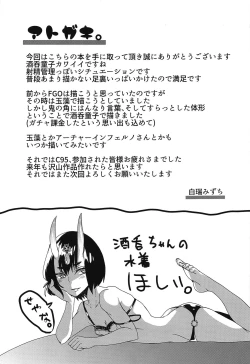 アトガキ。
今回はこちらの本を手に取って頂き誠にありがとうございます
酒呑童子カワイイですね
射精管理っぽいシチュエーションです
普段あまり描かない足裏いっぱいかけたので満足です
前からFGOは描こうと思っていたのですが
その時は玉藻で描こうとしてました
しかし鬼の角にはんなり言葉、そしてすらっとした体形
ということで酒呑童子で描きました
(ガチャ課金したという思い出も込めて)
玉藻とかアーチャーインフェルノさんとかも
いつか描いてみたいです
それではC95、参加された皆様お疲れさまでした
来年も沢山作品作れたらと思います
それではまた次回よろしくお願いいたします
白瑞みずち
酒呑ちゃんの
水着
ほしい。
せやな。